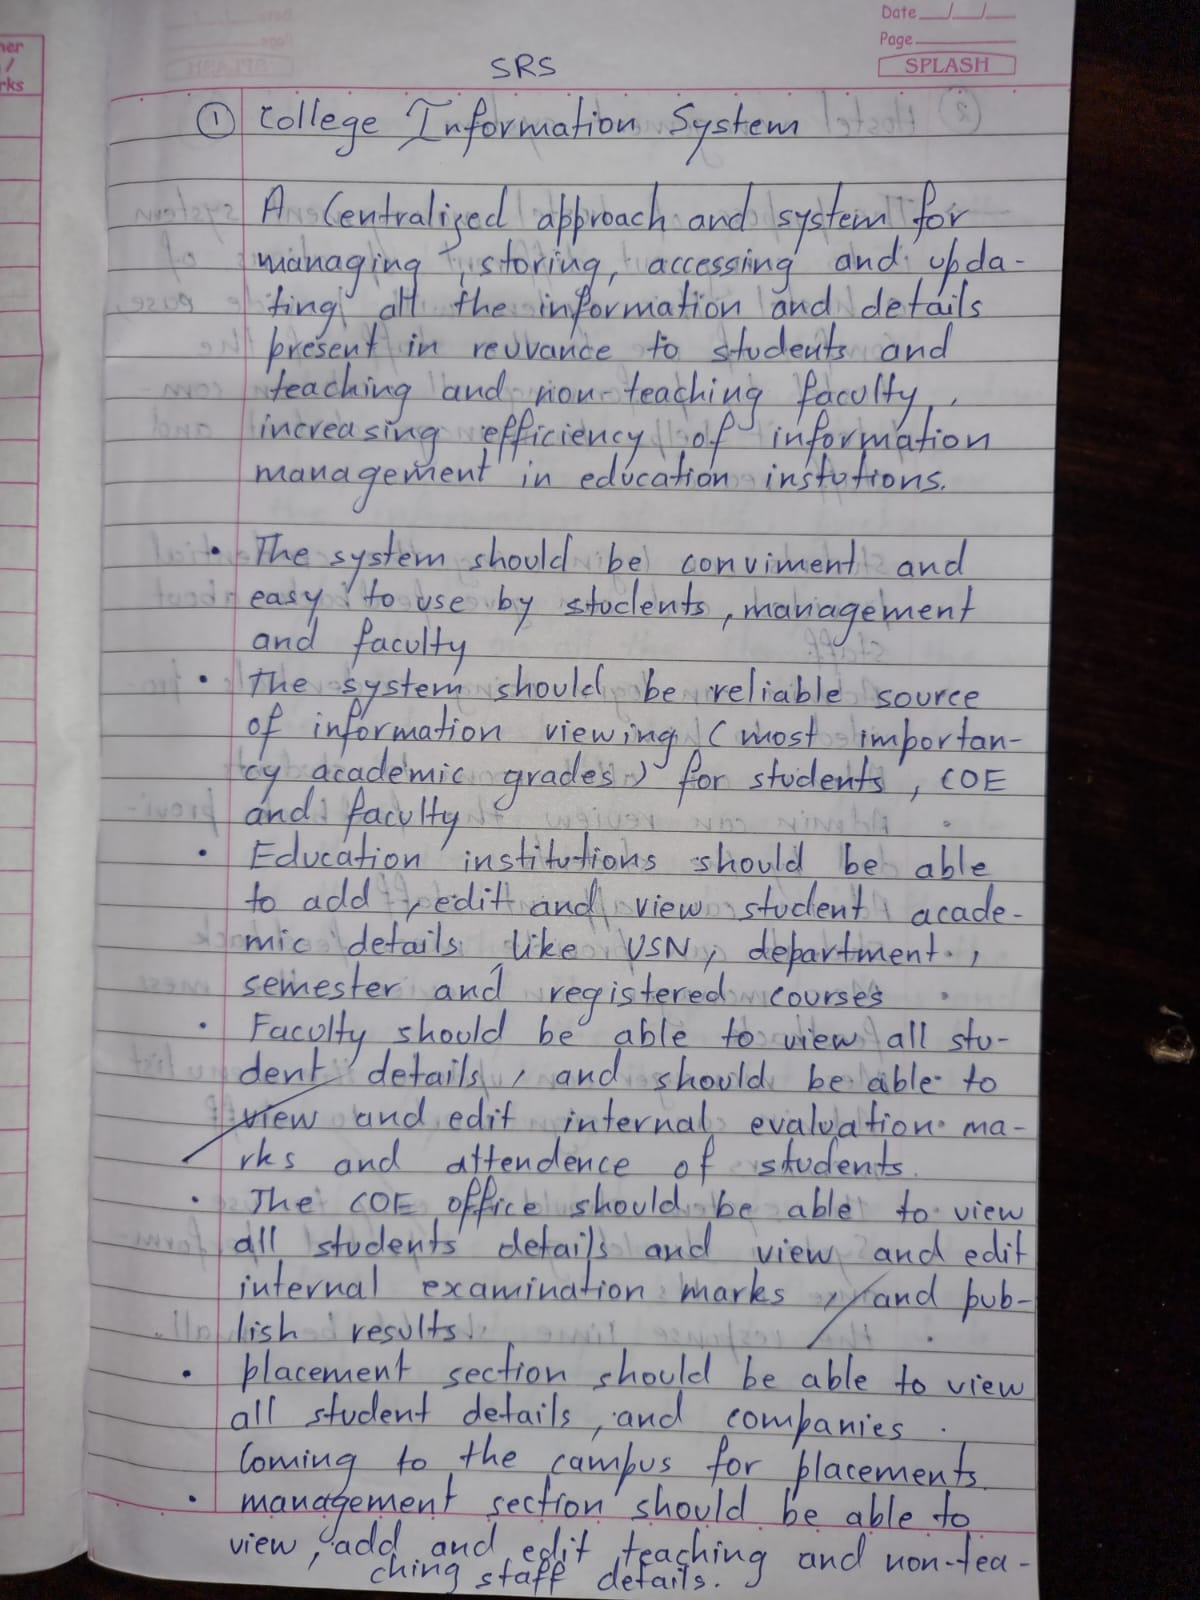 Date
Page
SPLASH
SRS
① College Information System
A Centralized approach and system for
managing, storing, accessing and upda-
ting all the information and details
present in reuvance to students and
teaching and non-teaching faculty,
increasing efficiency of information
management in education instutions.
• The system should be conviment and
easy to use by students, management
and faculty
• The system should be reliable source
of information viewing (most importan-
cy academic grades) for students, COE
and faculty
• Education institutions should be able
to add, edit and view student acade-
mic details like USN, department,
semester and registered courses
• Faculty should be able to view all stu-
dent details, and should be able to
view and edit internal evaluation ma-
rks and attendence of students.
• The COE office should be able to view
all students details and view and edit
internal examination marks, and pub-
lish results.
• placement section should be able to view
all student details, and companies
Coming to the campus for placements.
• management section should be able to
view, add and edit teaching and non-tea-
ching staff details.